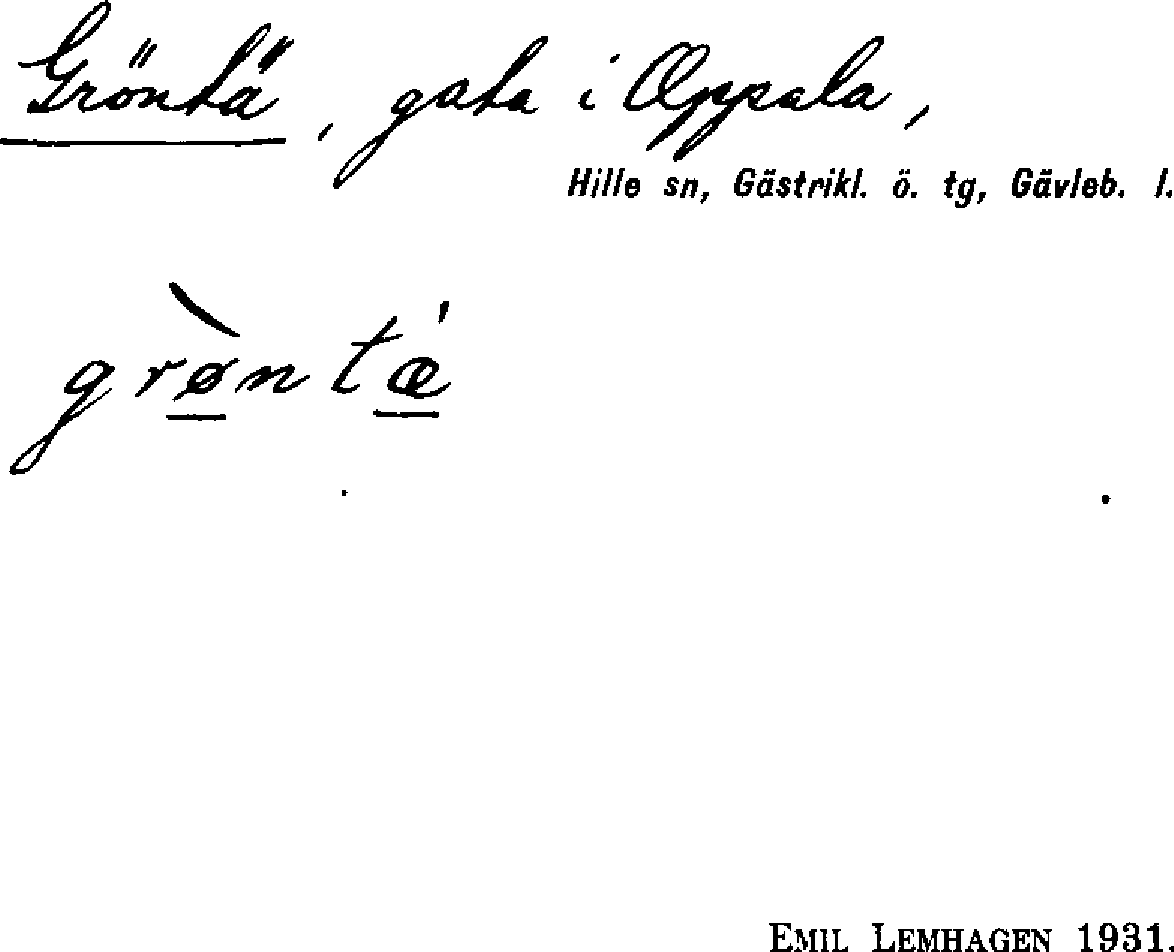 Gröntä, gata i Oppala,
Hille sn, Gästrikl. ö. tg, Gävleb. l.
grø̀ntǽ
EMIL LEMHAGEN 1931.